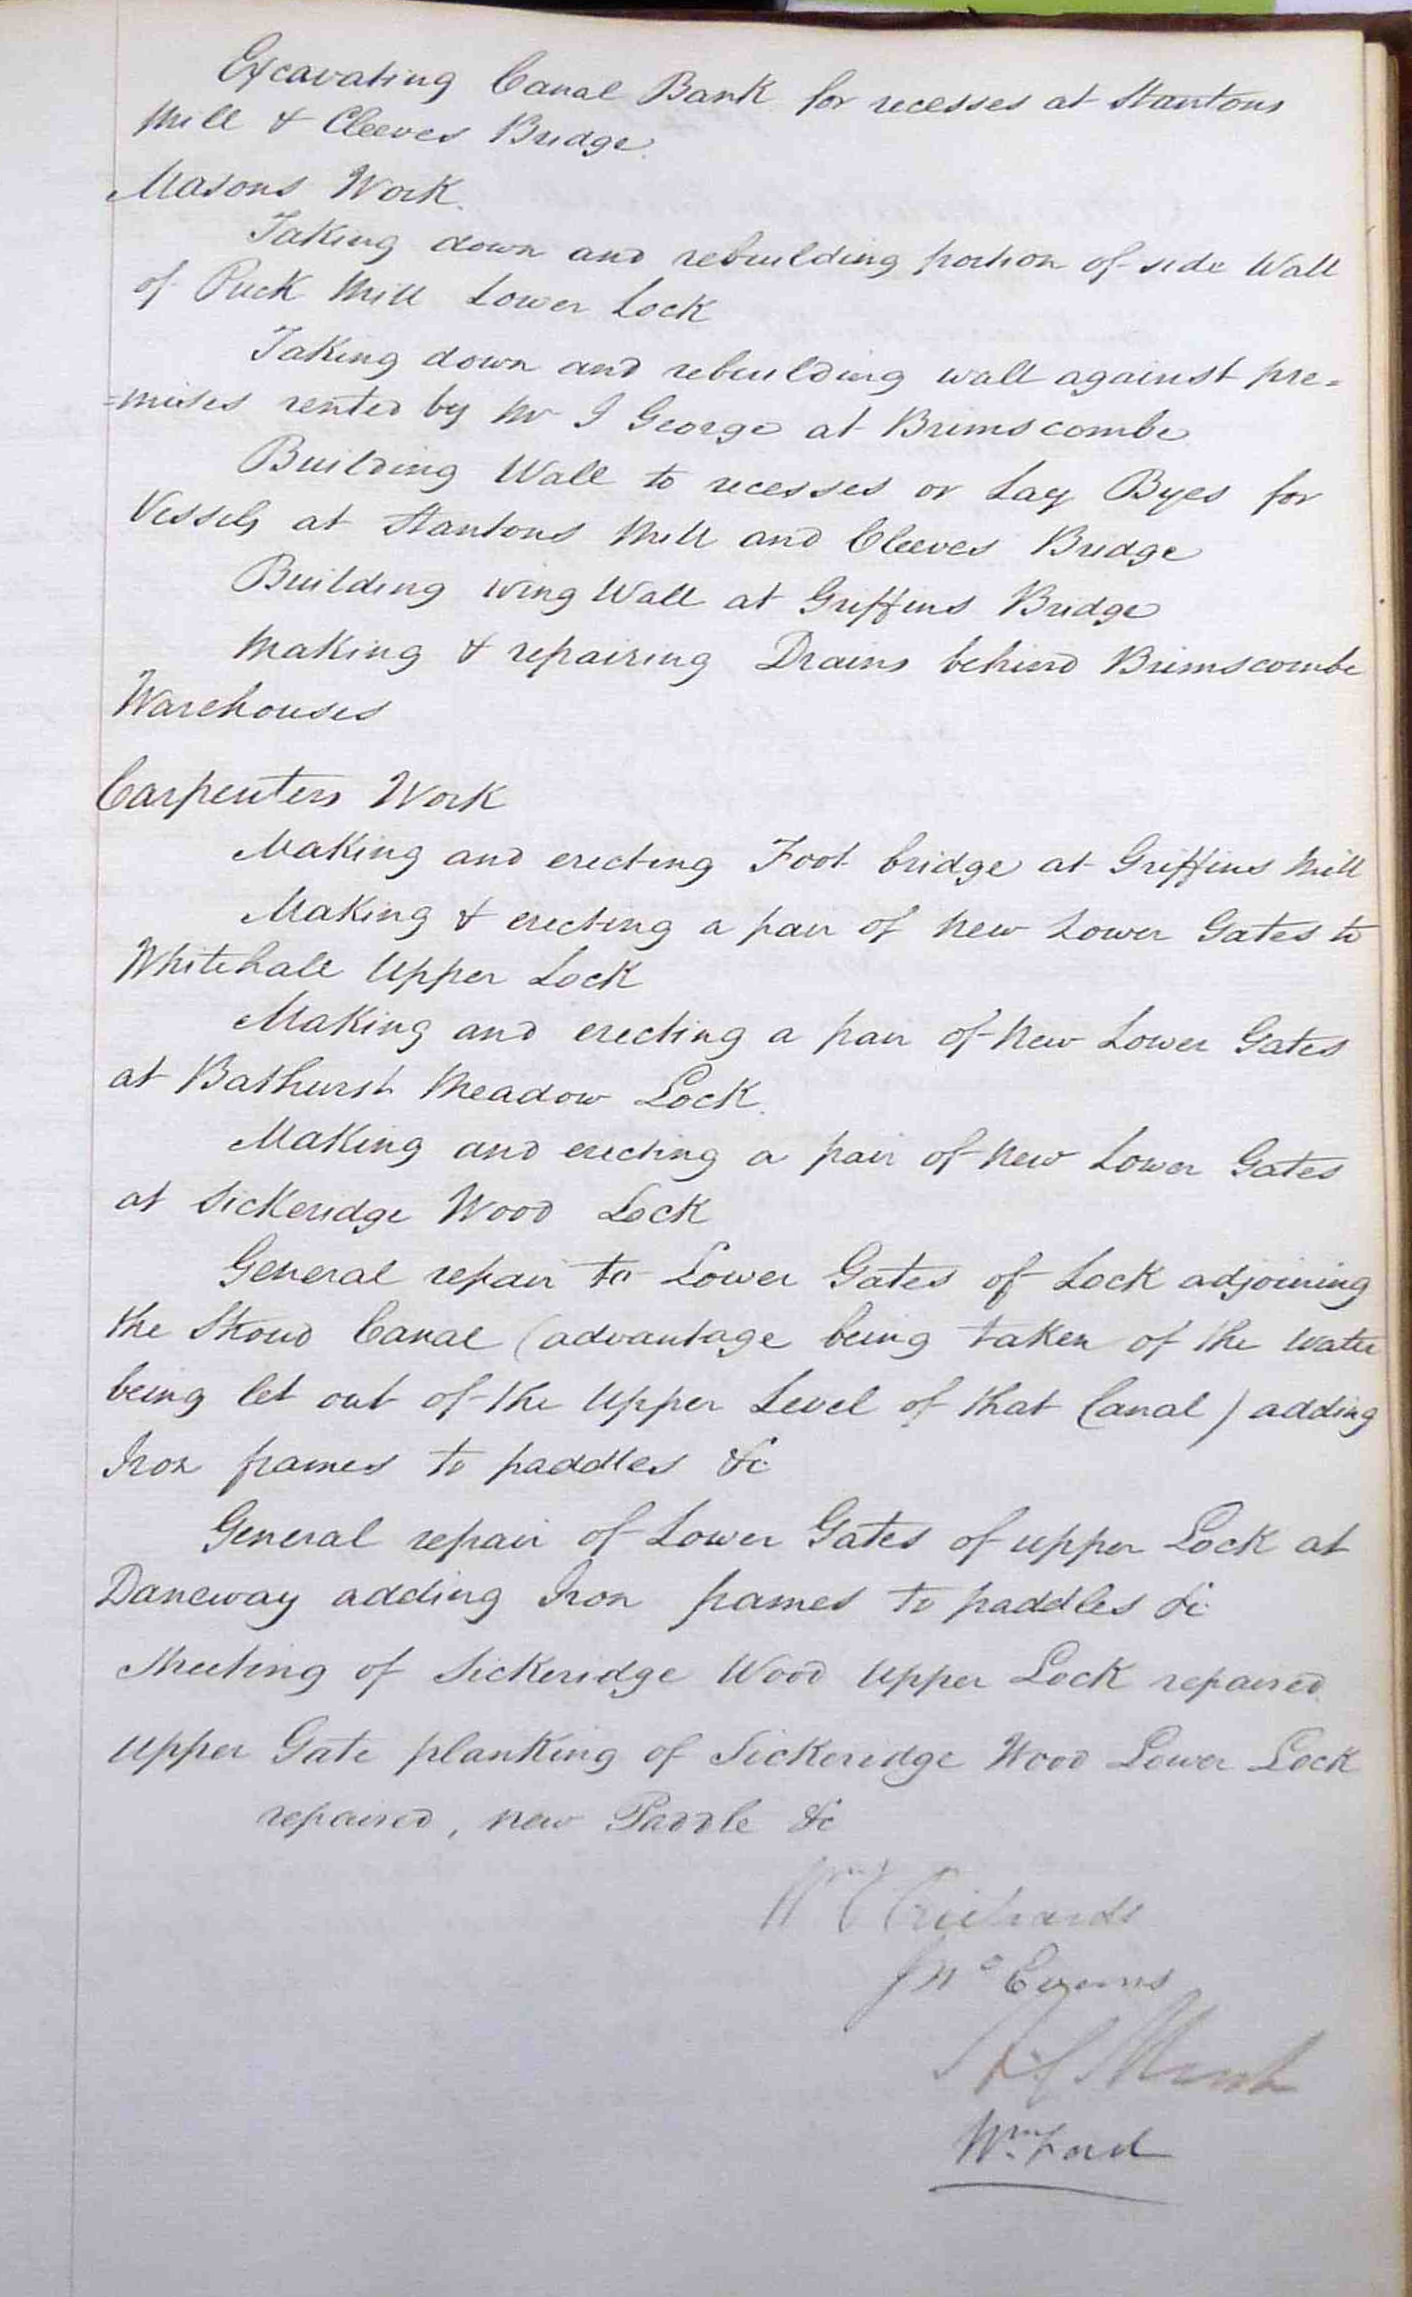 Excavating Canal Bank for recesses at Stantons
Mill & Cleeves Bridge.
Masons Work.
Taking down and rebuilding portion of side Wall
of Puck Mill Lower Lock
Taking down and rebuilding wall against pre=
=mises rented by Mr J George at Brimscombe
Building Wall to recesses or Lay Byes for
Vessels at Stantons Mill and Cleeves Bridge
Building wing Wall at Griffins Bridge
Making & repairing Drains behind Brimscombe
Warehouses
Carpenters Work
Making and erecting Foot bridge at Griffins Mill
Making & erecting a pair of New Lower Gates to
Whitehall Upper Lock
Making and erecting a pair of New Lower Gates
at Bathurst Meadow Lock.
Making and erecting a pair of New Lower Gates
at Sickeridge Wood Lock
General repair to Lower Gates of Lock adjoining
the Stroud Canal (advantage being taken of the Water
being let out of the Upper Level of that Canal) adding
Iron frames to paddles &c
General repair of Lower Gates of upper Lock at
Daneway adding Iron frames to paddles &c
Meeting of Sickeridge Wood Upper Lock repaired
Upper Gate planking of Sickeridge Wood Lower Lock
repaired, New Paddle &c
Wm Richards
Jno Evans
Wm Ford